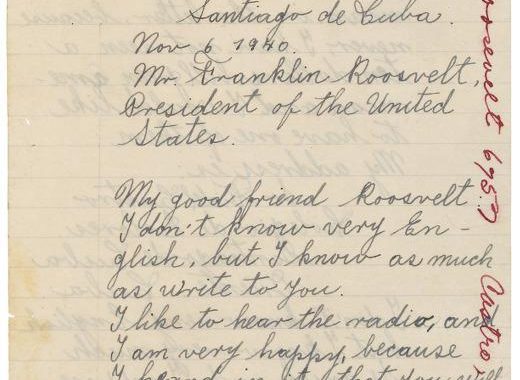 Santiago de Cuba.
Nov 6 1940.
Mr. Franklin Roosvelt,
President of the United
States.
My good friend Roosvelt
I don't know very En-
glish, but I know as much
as write to you.
I like to hear the radio, and
I am very happy, because
I heard in it, that you will
oosevelt 695.? Castro